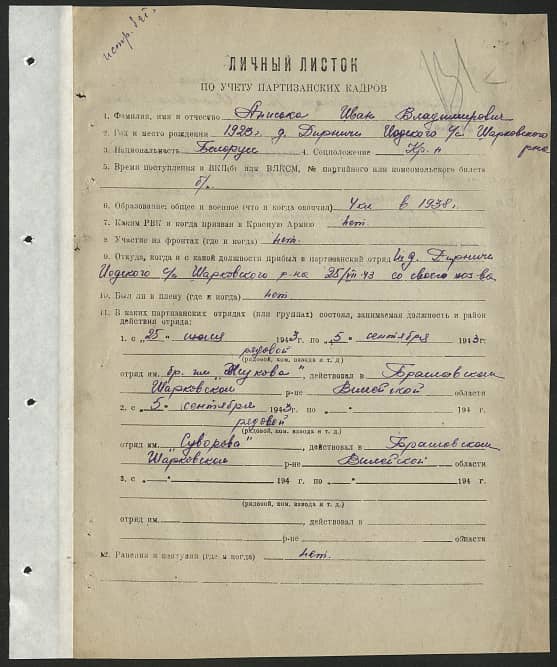 ЛИЧНЫЙ ЛИСТОК
ПО УЧЕТУ ПАРТИЗАНСКИХ КАДРОВ
1. Фамилия, имя и отчество Анисько Иван Владимирович
2. Год и место рождения 1923 г. д. Дирничи Иодского с/с Шарковского р-на
3. Национальность Белорус 4. Соцположение Кр-н
5. Время поступления в ВКП(б) или ВЛКСМ, № партийного или комсомольского билета
б/п
6. Образование: общее и военное (что и когда окончил) 4 кл в 1938 г.
7. Каким РВК и когда призван в Красную Армию нет.
8. Участие на фронтах (где и когда) нет.
9. Откуда, когда и с какой должности прибыл в партизанский отряд из д. Дирничи
Иодского с/с Шарковского р-на 25/VII-43 со своего хоз-ва
10. Был ли в плену (где и когда) нет
11. В каких партизанских отрядах (или группах) состоял, занимаемая должность и район
действия отряда:
1. с „25" июля 1943 г. по „5" сентября 1943 г.
рядовой
(рядовой, ком. взвода и т. д.)
отряд им. бр. им „Жукова", действовал в
Шарковском р-не Вилейской области
2. с „5" сентября 1943 г. по „ " 194 г.
рядовой
(рядовой, ком. взвода и т. д.)
отряд им. „Суворова", действовал в
Шарковском р-не Вилейской области
3. с „ " 194 г. по „ " 194 г.
(рядовой, ком. взвода и т. д.)
отряд им. , действовал в
р-не области
12. Ранения и контузии (где и когда) нет.